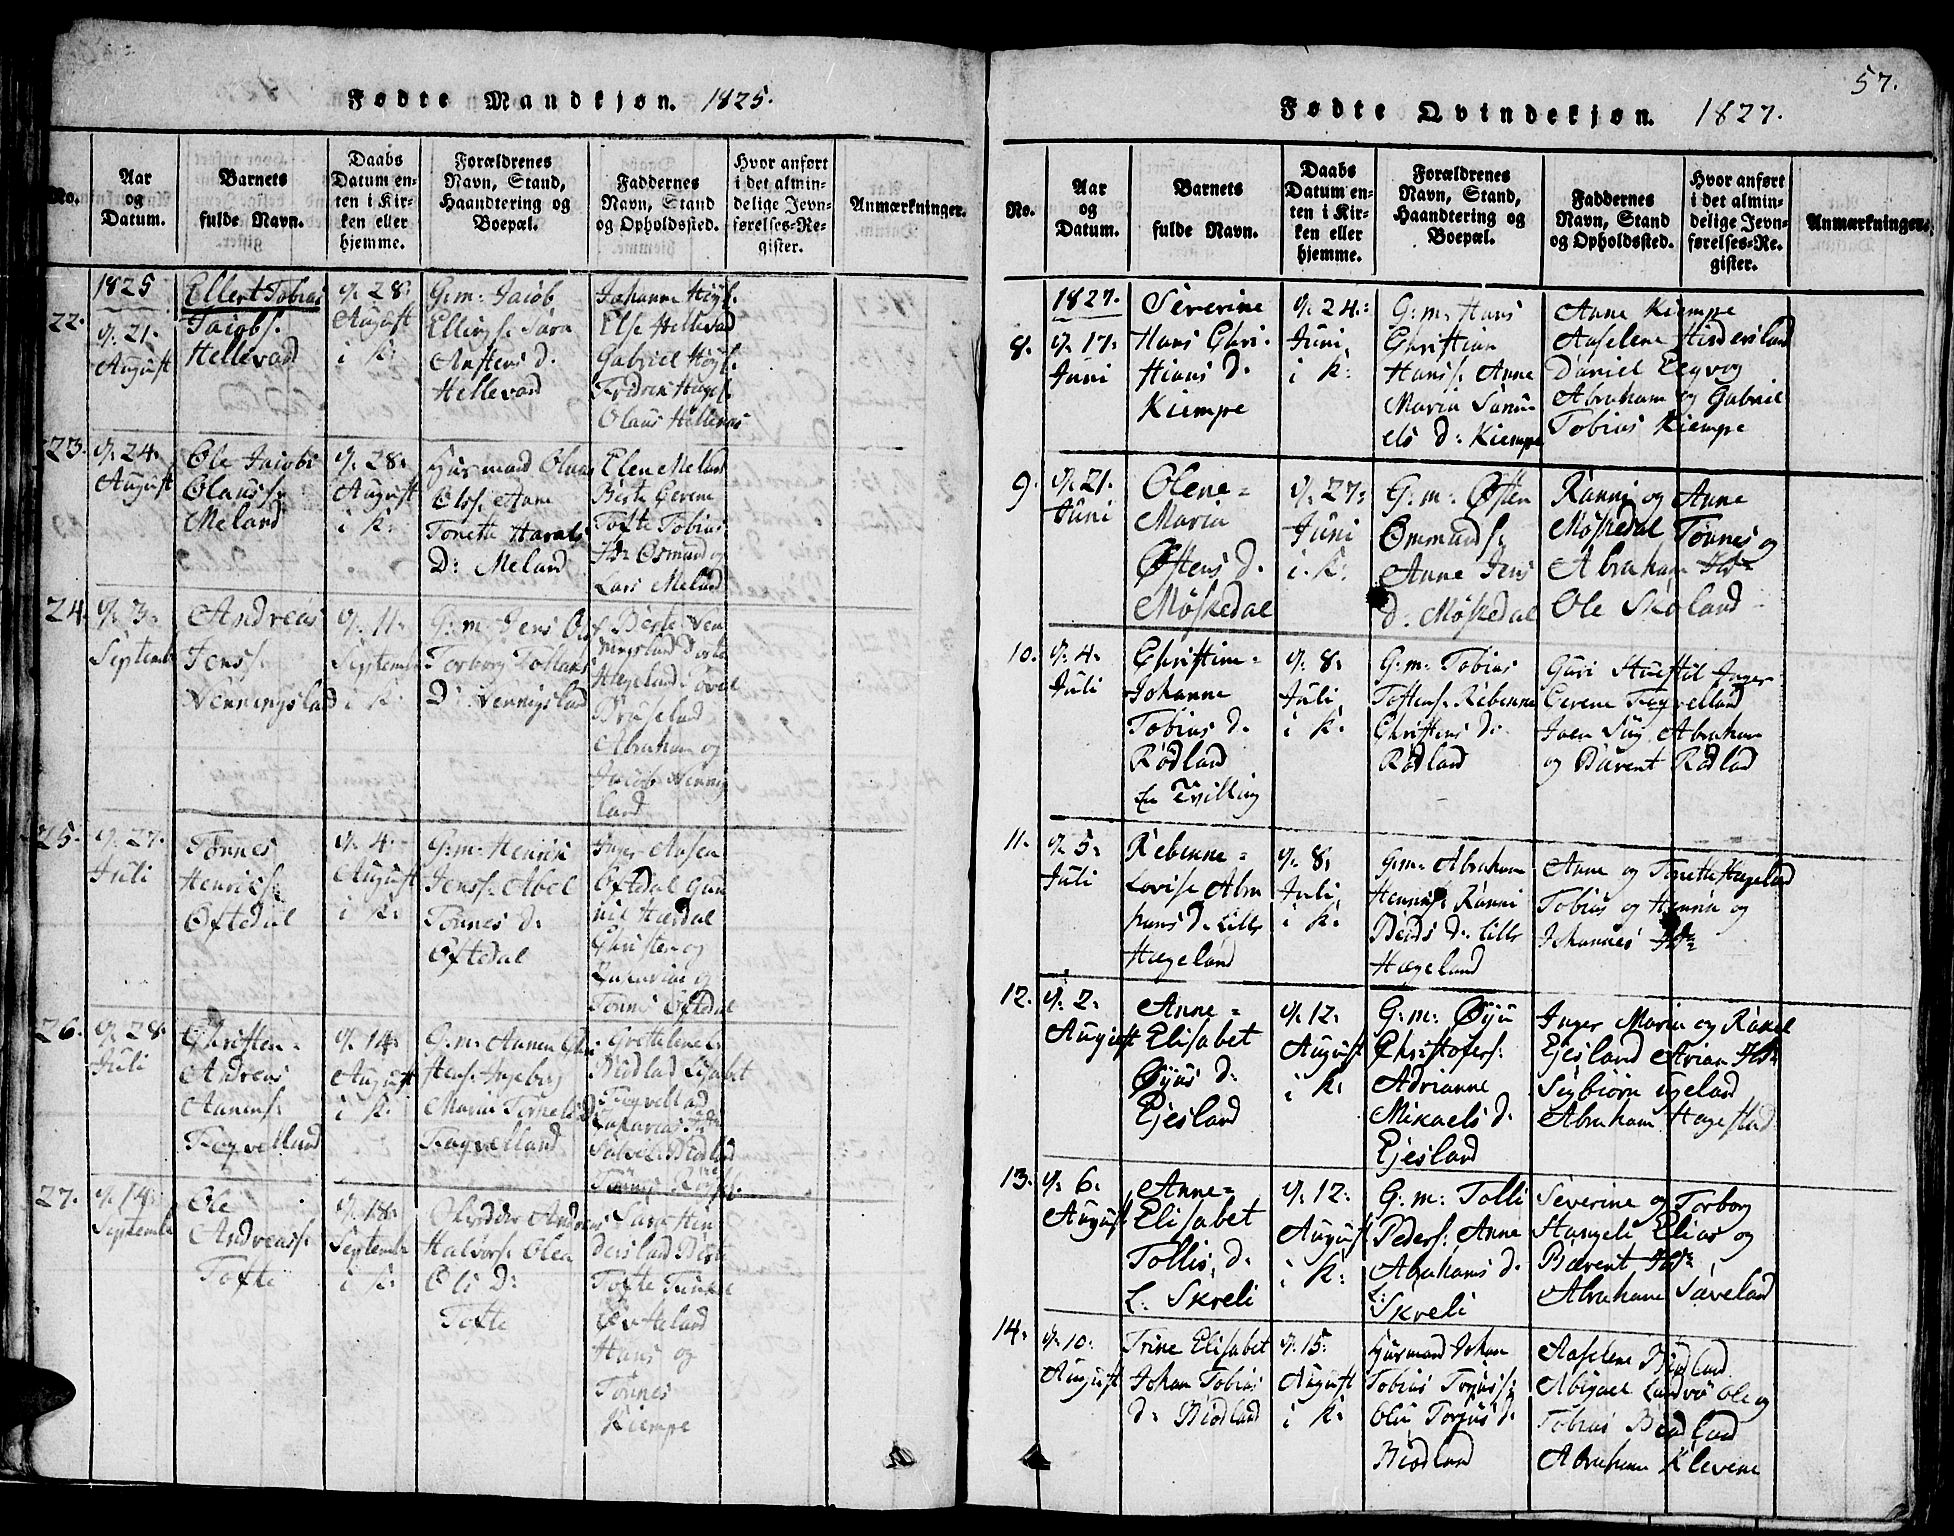 Fødte Mandkjøn. 1825.
No.
Aar
og
Datum.
Barnets
fulde Navn.
Daabs
Datum en-
ten i Kir-
ken eller
hjemme.
Forældrenes
Navn, Stand,
Haandtering og
Boepæl.
Faddernes
Navn, Stand
og Opholdssted.
Hvor anført
i det almin-
delige Jevn-
førelses-Re-
gister.
Anmærkninger.
22.
1825
d. 21.
August
Ellert Tobias
Jacobs.
Hellevard
d. 28.
August
i K:
G: m: Jacob
Ellings. Sara
Anstens D.
Hellevard
Johanne Høyl.
Else Hellevad
Gabriel Høyl.
Olaus Hellevad
23.
d. 24.
August
Ole Jacobs
Olauss.
Meland
d. 28.
August
i K:
Husmand Olaus
Olss. Anne
Tonette Haralds
D: Meland
Elen Meland
Berte Gerene
Tofte Tobias
Osmund og
Lars Meland
24.
d. 3.
Septembr
Andreas
Jenss.
Venningslad
d. 11.
Septembr
i K:
G: m: Jens Ols.
Torborg Tollans
D: Vennigslad
Berte Ven
ningslad
Hægeland
Abraham og
Jacob Vennig
land
25.
d. 27.
Juli
Tønnes
Henriks.
Oftedal
d. 4.
August
i K:
G: m: Henrik
Jenss. Abel
Tønnes D.
Oftedal
Inger Aasen
Oftedal Gun
nil Hærdal
Christen og
Tønnes Oftedal
26.
d. 28.
Juli
Christen
Andreas
Aanens.
Fagvelland
d. 14.
August
i K:
G: m: Aanen Chri
stens. Ingeborg
Maria Tønnes D.
Fagvelland
Gretelene
Biodlad Lisabet
Fagvellad
Zakarias
Biodlad
27.
d. 14.
Septembr
Ole
Andreass.
Tofte
d. 18.
Septembr
i K:
Andreas
Halvors. Olea
Ols D:
Tofte
Sara Hin
dersland Berte
Tofte
Hans og
Tønnes
Kiempe
57.
Fødte Qvindekjøn. 1827.
No.
Aar
og
Datum.
Barnets
fulde Navn.
Daabs
Datum en-
ten i Kir-
ken eller
hjemme.
Forældrenes
Navn, Stand,
Haandtering og
Boepæl.
Faddernes
Navn, Stand
og Opholdssted.
Hvor anført
i det almin-
delige Jevn-
førelses-Re-
gister.
Anmærkninger.
8.
1827.
d. 17.
Juni
Severine
Hans Chri-
stians D.
Kiempe
d. 24.
Juni
i K:
G: m: Hans
Christian
Hanss. Anne
Maria Samu
els D: Kiempe
Anne Kiempe
Aaselene Hindersland
Daniel Eeg og
Abraham og Gabriel
Tobias Kiempe
9.
d. 21.
Juni
Olene
Maria
Østens D.
Møskedal
d. 27.
Juni
i K:
G: m: Østen
Ommunds.
Anne Jens
D: Møskedal
Ranni og Anne
Møskedal Tønnes og
Abraham
Ole Skoland
10.
d. 4.
Juli
Christine
Johanne
Tobias D.
Rødland
En Tvilling
d. 8.
Juli
i K:
G: m: Tobias
Tostens. Rebenne
Christens D.
Rødland
Guri Stuestøl Inger
Gerene Fagvelland
Abraham
og Bærent Rødlad
11.
d. 5.
Juli
Rebenne
Lovise Abra
hams D. Lille
Hægeland
d. 8.
Juli
i K:
G: m: Abraham
Henriks. Ranni
Berds D. Lille
Hægeland
Anne og Tonette Hægelad
Tobias og Henrik og
Johannes
12.
d. 2.
August
Anne
Elisabet
Øyus D.
Ejesland
d. 12.
August
i K:
G: m: Øyu
Christofers.
Adrianne
Mikaels D.
Ejesland
Inger Maria og Rakel
Ejesland Arian
Sigbiørn Egelad
Abraham Hagestad
13.
d. 6.
August
Anne
Elisabet
Tollis D.
L: Skreli
d. 12.
August
i K:
G: m: Tolli
Peders. Anne
Abrahams D.
L: Skreli
Severine og Torborg
Elias og
Bærent
Abraham Saveland
14.
d. 10.
August
Trine Elisabet
Johan Tobias
D. Biodland
d. 15.
August
i K:
Husmand Johan
Tobias Torjuss.
Olu Torjus D.
Biodland
Aaselene Biodland
Abigael Landvø Ole og
Tobias Biodland
Abraham Klevene